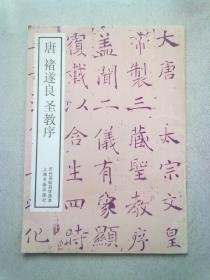 大唐太宗文皇
帝製三藏聖教序
蓋聞二儀有象
覆載以含生四時
化
唐 褚遂良 圣教序
上海书画出版社